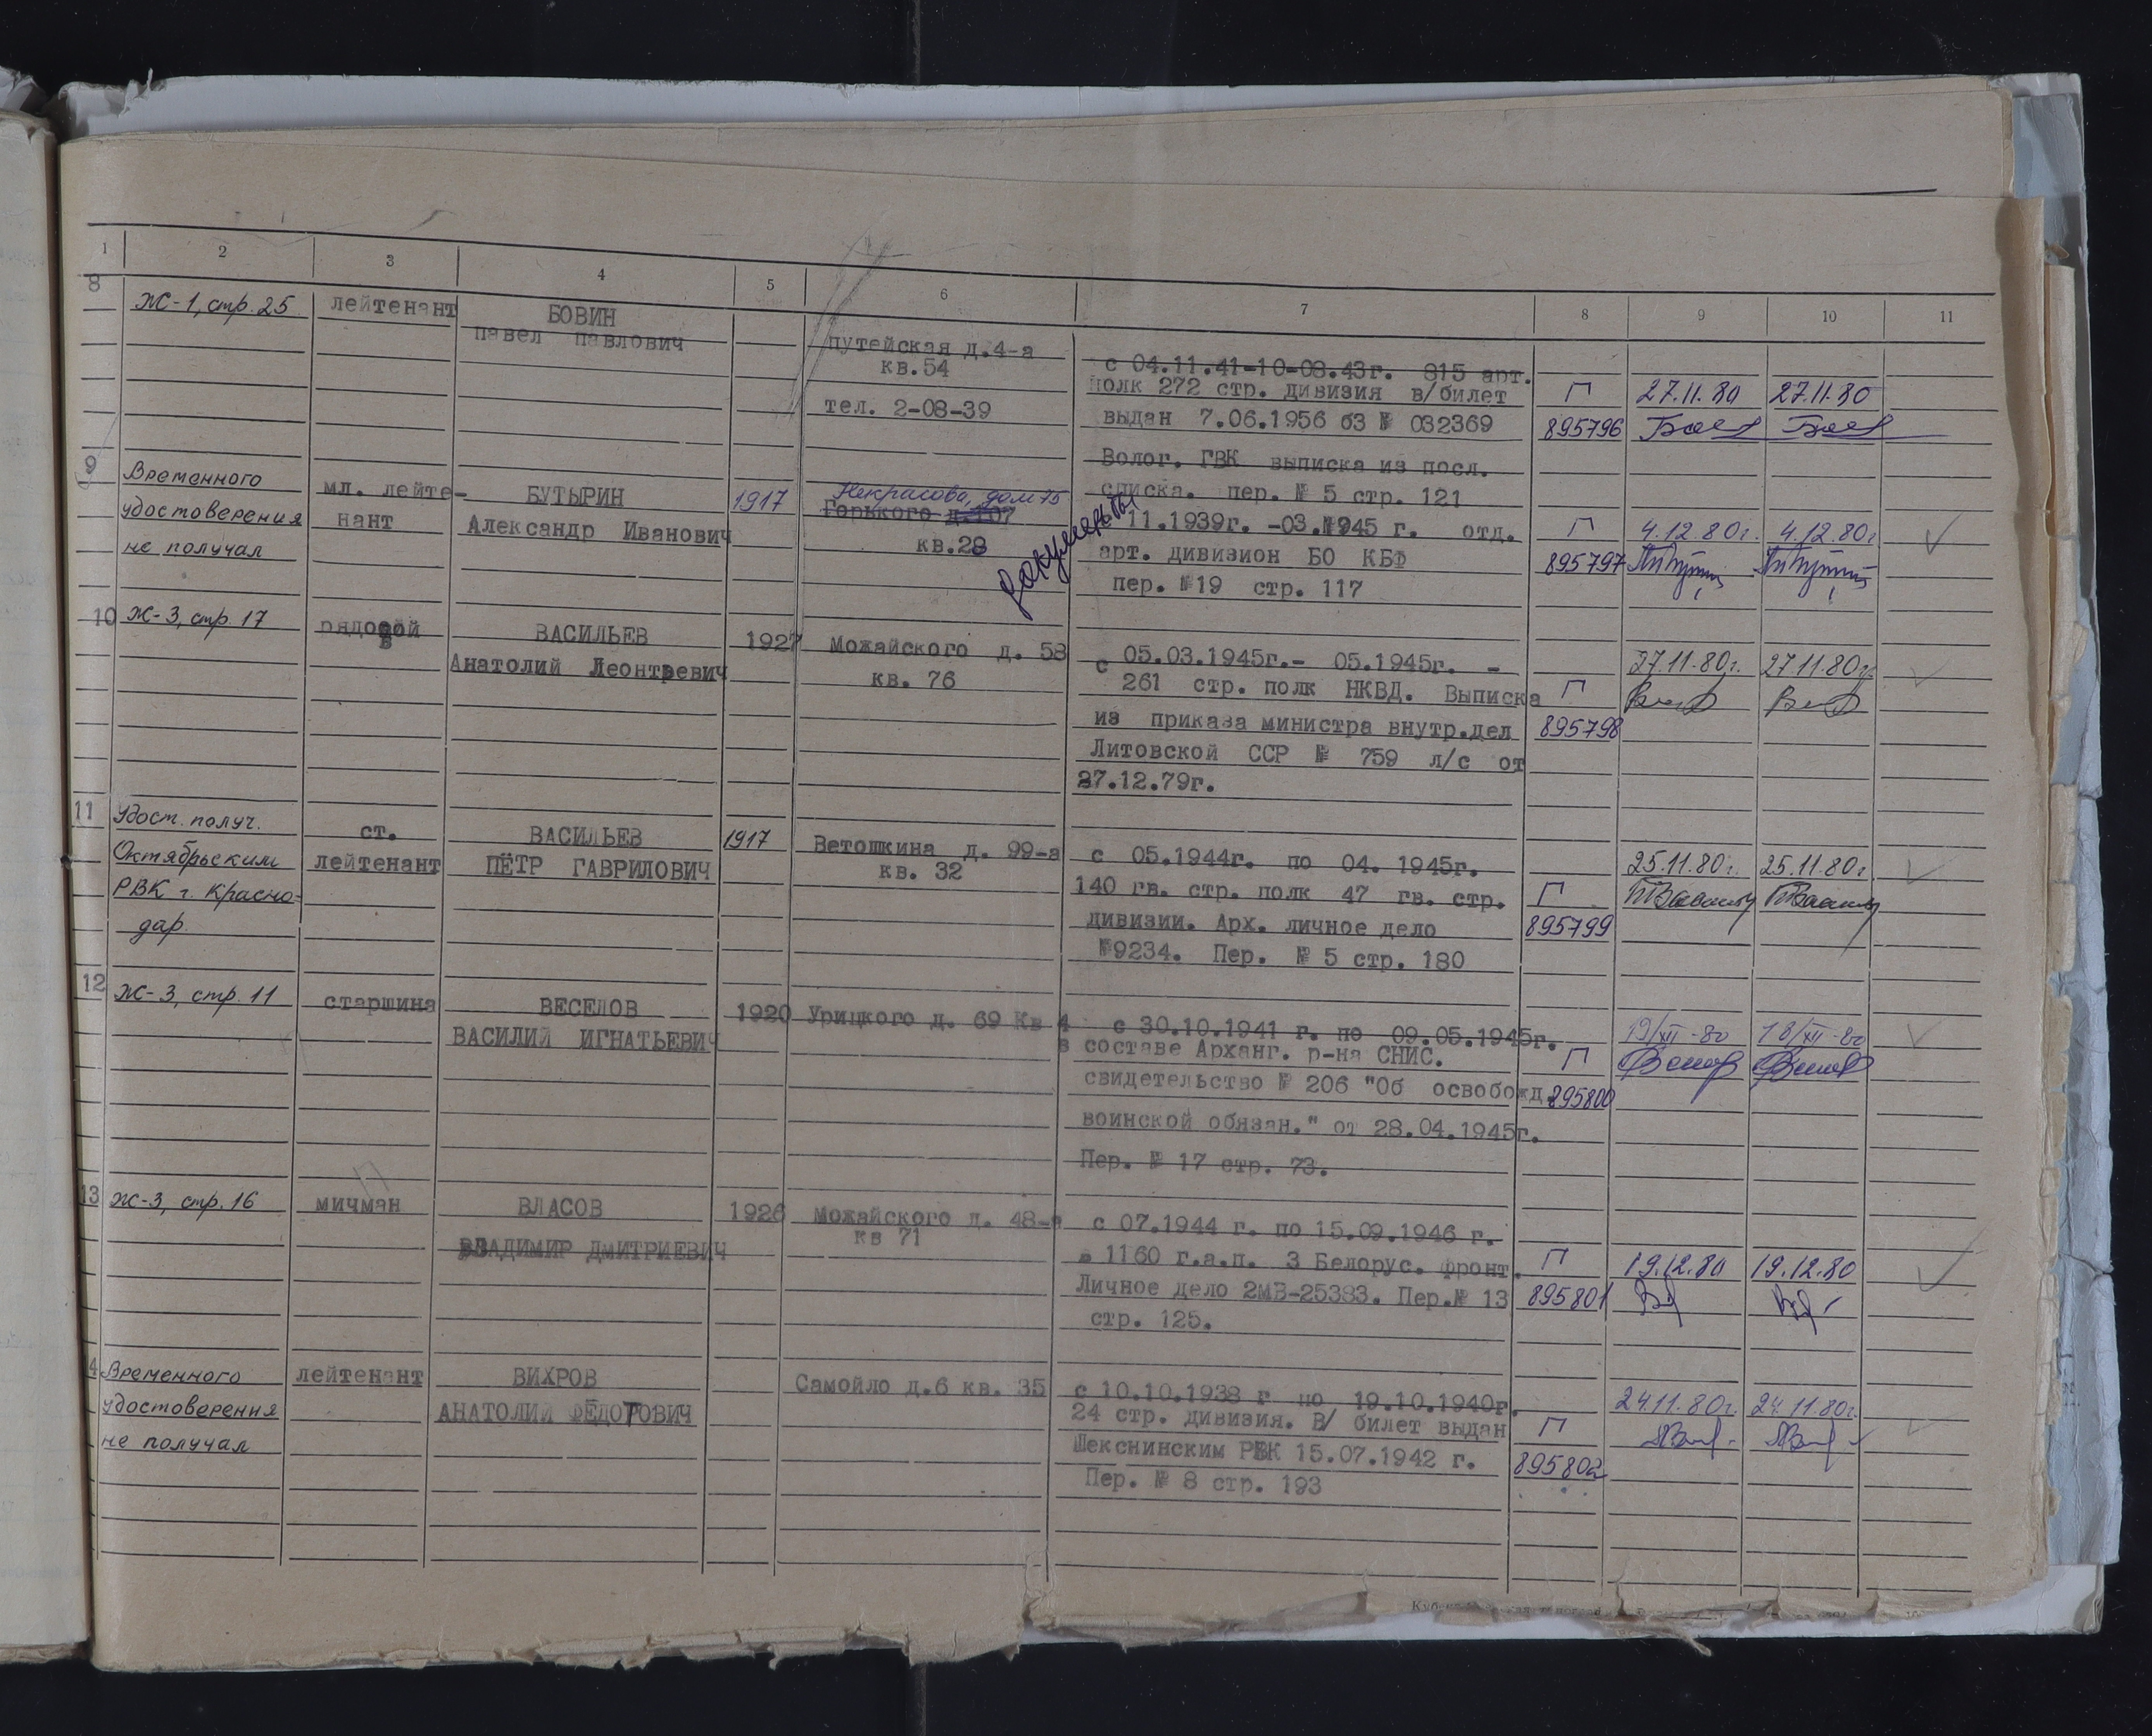 1 2 3 4 5 6 7 8 9 10 11
8
Ж-1, стр. 25
лейтенант
БОВИН
павел павлович
путейская д.4-а
кв.54
тел. 2-08-39
с 04.11.41-10-08.43г. 815 арт.
полк 272 стр. дивизия в/билет
выдан 7.06.1956 бЗ № 032369
Волог. ГВК выписка из посл.
списка. пер. № 5 стр. 121
Г
895796
27.11.80
27.11.80
9
Временного
удостоверения
не получал
мл. лейте-
нант
БУТЫРИН
Александр Иванович
1917
Некрасова, дом 75
Горького д.107
кв.28
документы
11.1939г. -03.1945 г. отд.
арт. дивизион БО КБФ
пер. №19 стр. 117
Г
895797
4.12.80г.
4.12.80г
10
Ж-3, стр. 17
рядовой
ВАСИЛЬЕВ
Анатолий Леонтревич
1927
Можайского д. 58
кв. 76
с 05.03.1945г.- 05.1945г. -
261 стр. полк НКВД. Выписка
из приказа министра внутр.дел
Литовской ССР № 759 л/с от
27.12.79г.
Г
895798
27.11.80г.
27.11.80г.
11
Удост. получ.
Октябрьским
РВК г. Красно-
дар.
ст.
лейтенант
ВАСИЛЬЕВ
ПЁТР ГАВРИЛОВИЧ
1917
Ветошкина д. 99-а
кв. 32
с 05.1944г. по 04. 1945г.
140 гв. стр. полк 47 гв. стр.
дивизии. Арх. личное дело
№9234. Пер. № 5 стр. 180
Г
895799
25.11.80г.
25.11.80г.
12
Ж-3, стр. 11
старшина
ВЕСЕЛОВ
ВАСИЛИЙ ИГНАТЬЕВИЧ
1920
Урицкого д. 69 Кв 4
с 30.10.1941 г. по 09.05.1945г.
в составе Арханг. р-на СНИС.
свидетельство № 206 "Об освобожд.
воинской обязан." от 28.04.1945г.
Пер. № 17 стр. 73.
Г
895800
19/XII-80
18/XII-80
13
Ж-3, стр. 16
мичман
ВЛАСОВ
ВЛАДИМИР ДМИТРИЕВИЧ
1926
Можайского д. 48-а
кв 71
с 07.1944 г. по 15.09.1946 г.
в 1160 г.а.п. 3 Белорус. фронт.
Личное дело 2мВ-25383. Пер.№ 13
стр. 125.
Г
895801
19.12.80
19.12.80
4
Временного
удостоверения
не получал
лейтенант
ВИХРОВ
АНАТОЛИЙ ФЁДОТОВИЧ
Самойло д.6 кв. 35
с 10.10.1938 г по 19.10.1940г.
24 стр. дивизия. В/ билет выдан
Шекснинским РВК 15.07.1942 г.
Пер. № 8 стр. 193
Г
895802
24.11.80г.
24.11.80г.